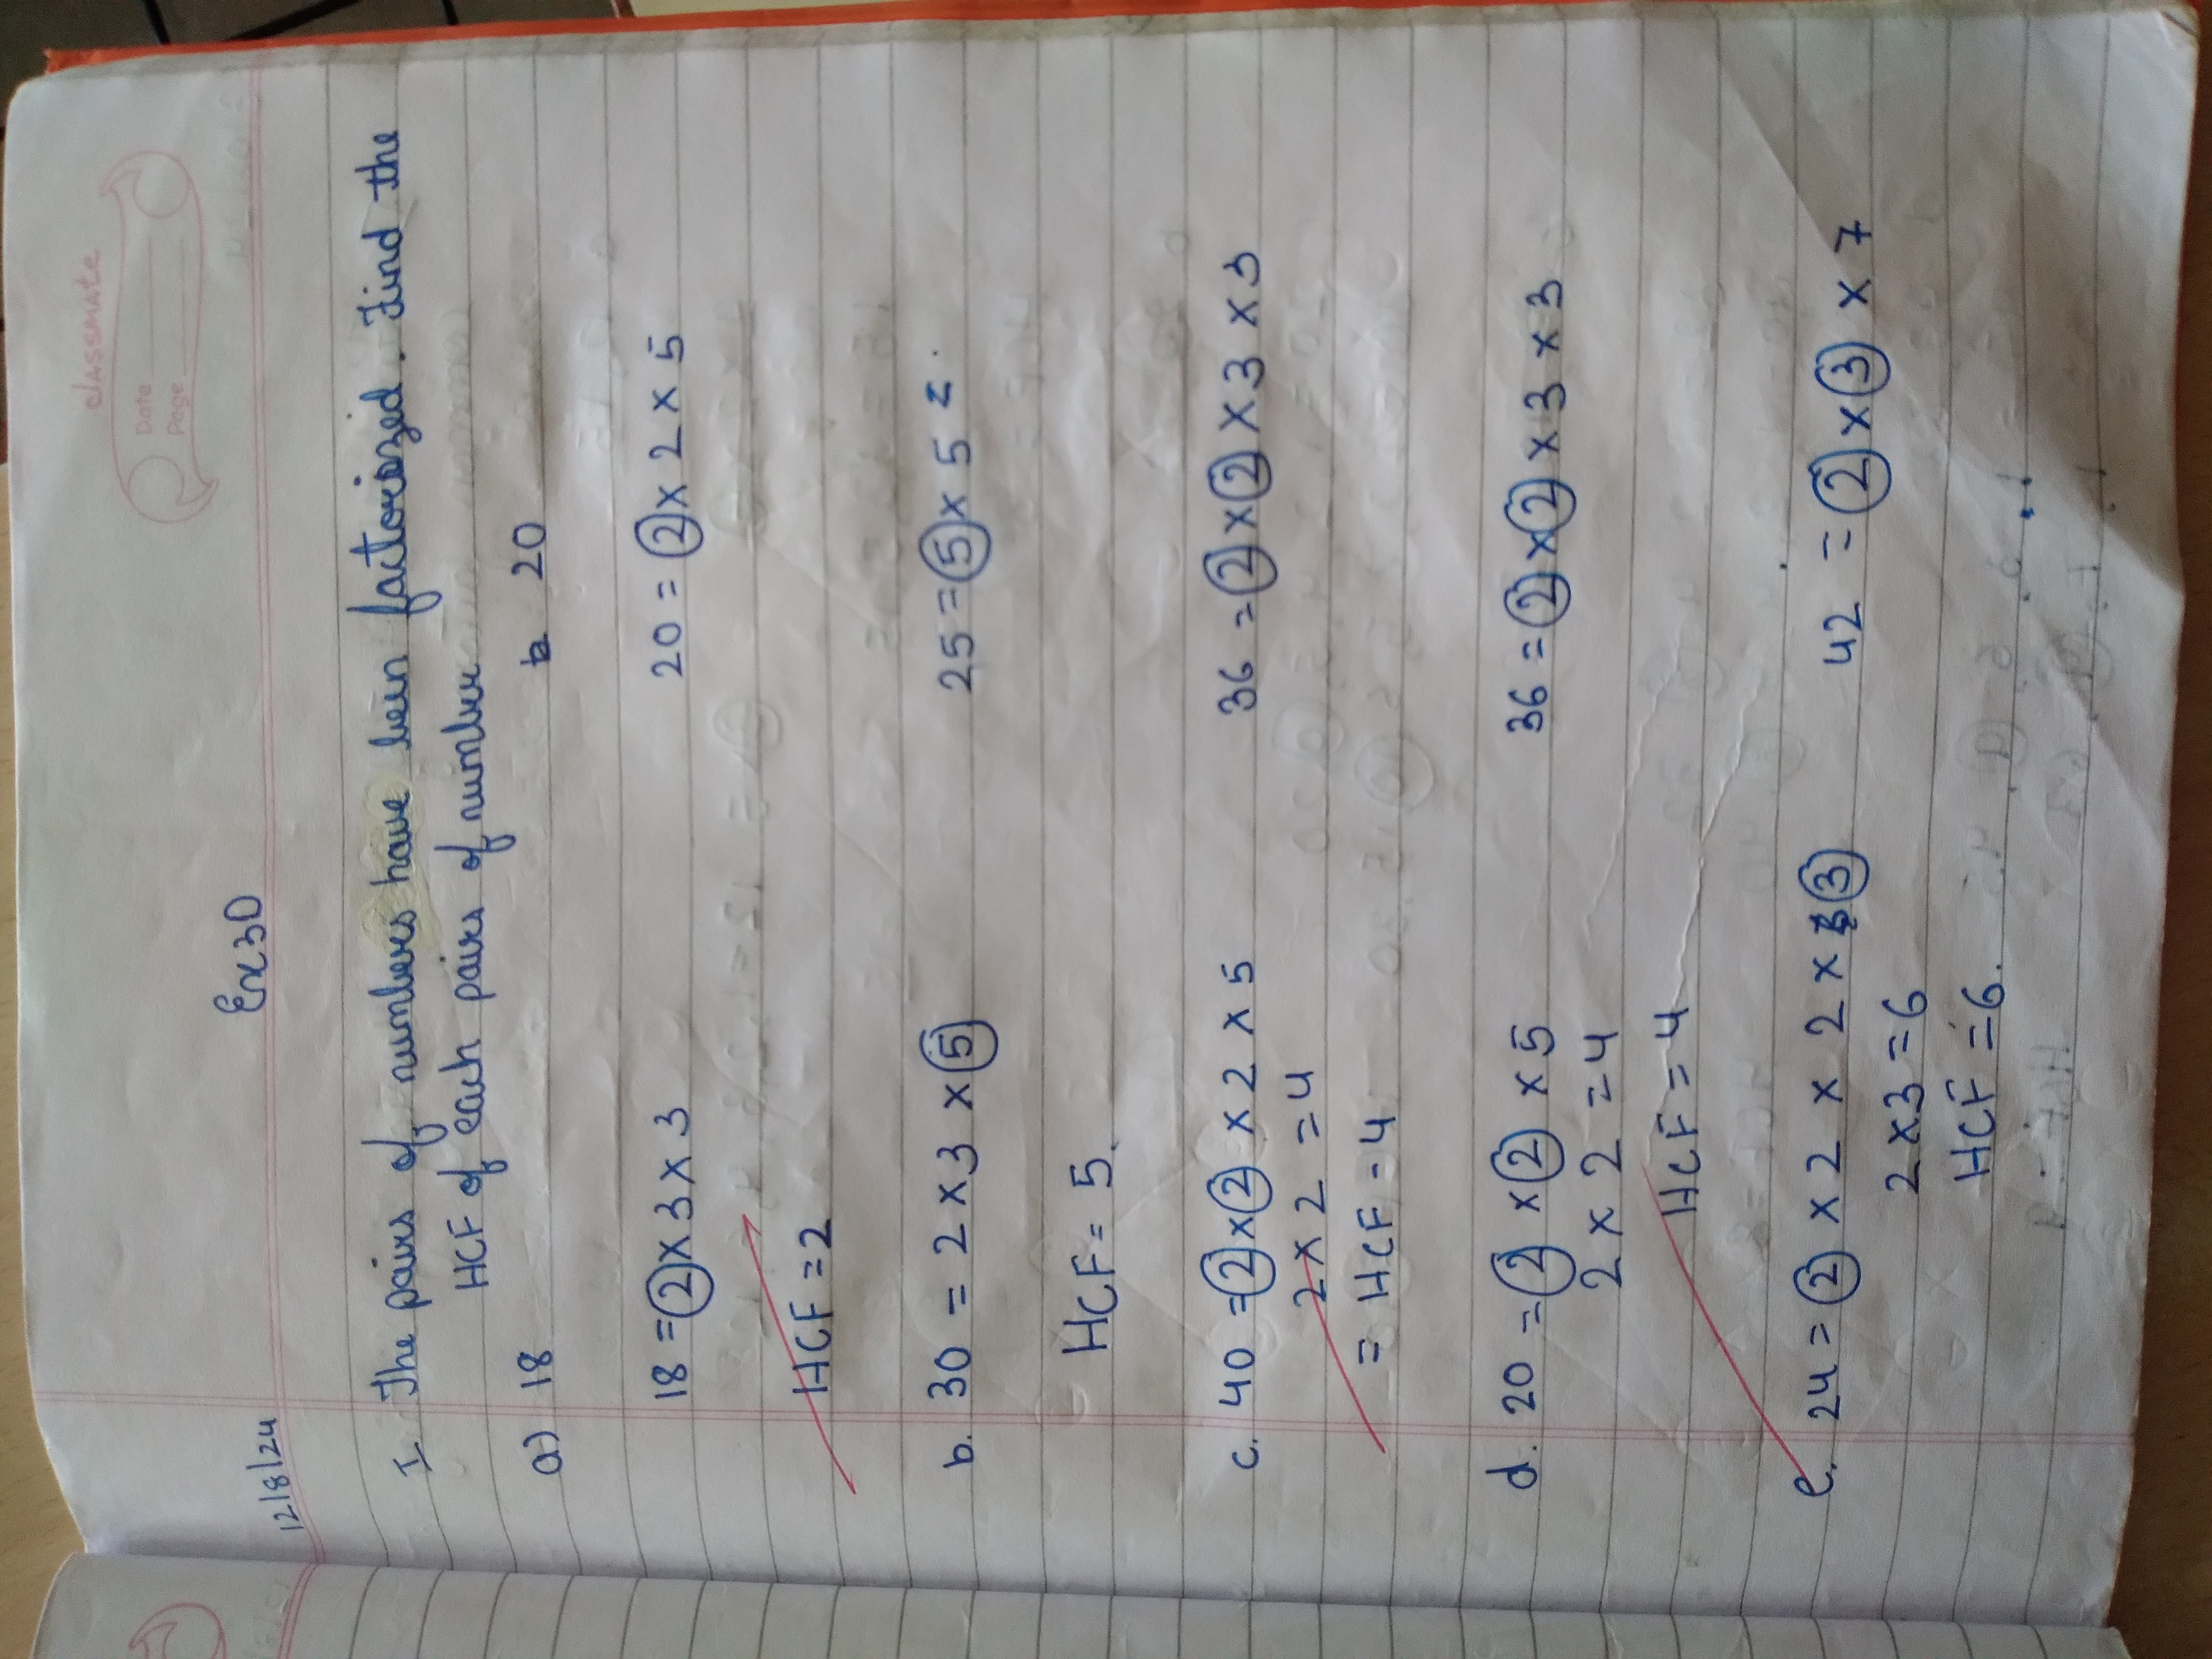 classmate
Date
Page
12/8/24 Ex3D
I. The pairs of numbers have been factorized. Find the
HCF of each pairs of number
a) 18 b 20
18 = 2 x 3 x 3 20 = 2 x 2 x 5
HCF = 2
b. 30 = 2 x 3 x 5 25 = 5 x 5
HCF = 5
c. 40 = 2 x 2 x 2 x 5 36 = 2 x 2 x 3 x 3
2 x 2 = 4
= HCF = 4
d. 20 = 2 x 2 x 5 36 = 2 x 2 x 3 x 3
2 x 2 = 4
HCF = 4
e. 24 = 2 x 2 x 2 x 3 42 = 2 x 3 x 7
2 x 3 = 6
HCF = 6.